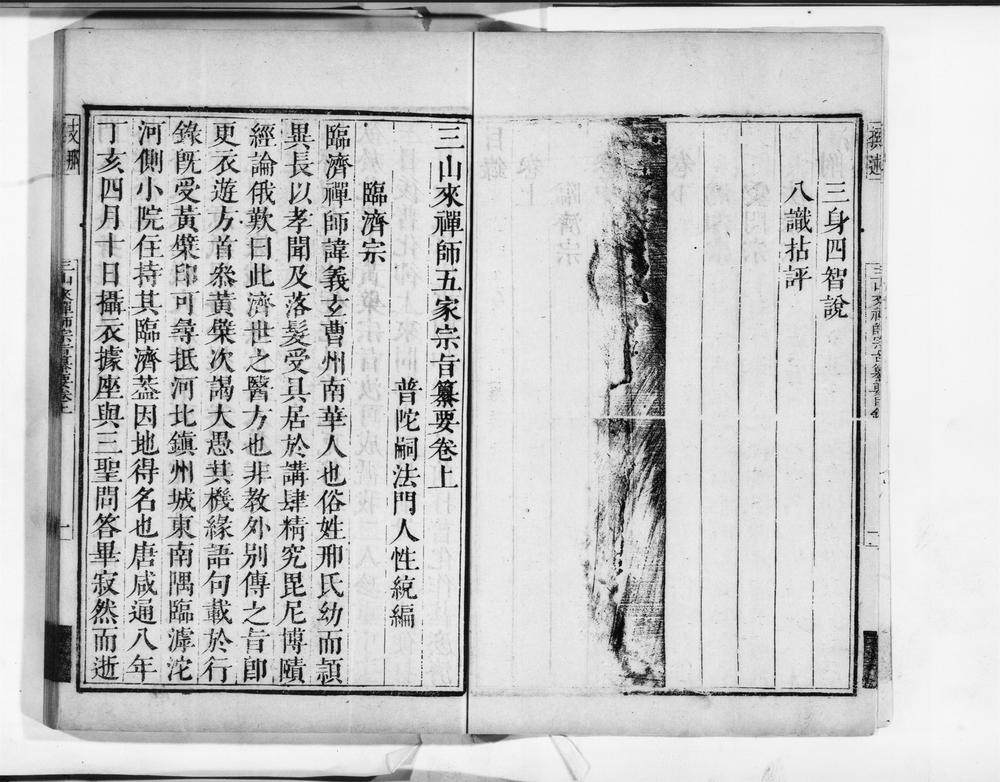 三身四智說
八識拈評
三山來禪師五家宗旨纂要卷上
普陀嗣法門人性統編
臨濟宗
臨濟禪師諱義玄曹州南華人也俗姓邢氏幼而頴
異長以孝聞及落髮受具居於講肆精究毘尼博賾
經論俄歎曰此濟世之醫方也非教外別傳之旨卽
更衣遊方首叅黃檗次謁大愚其機緣語句載於行
錄旣受黃檗印可尋抵河北鎮州城東南隅臨滹沱
河側小院住持其臨濟葢因地得名也唐咸通八年
丁亥四月十日攝衣據座與三聖問答畢寂然而逝
三山來禪師宗旨纂要卷上
一